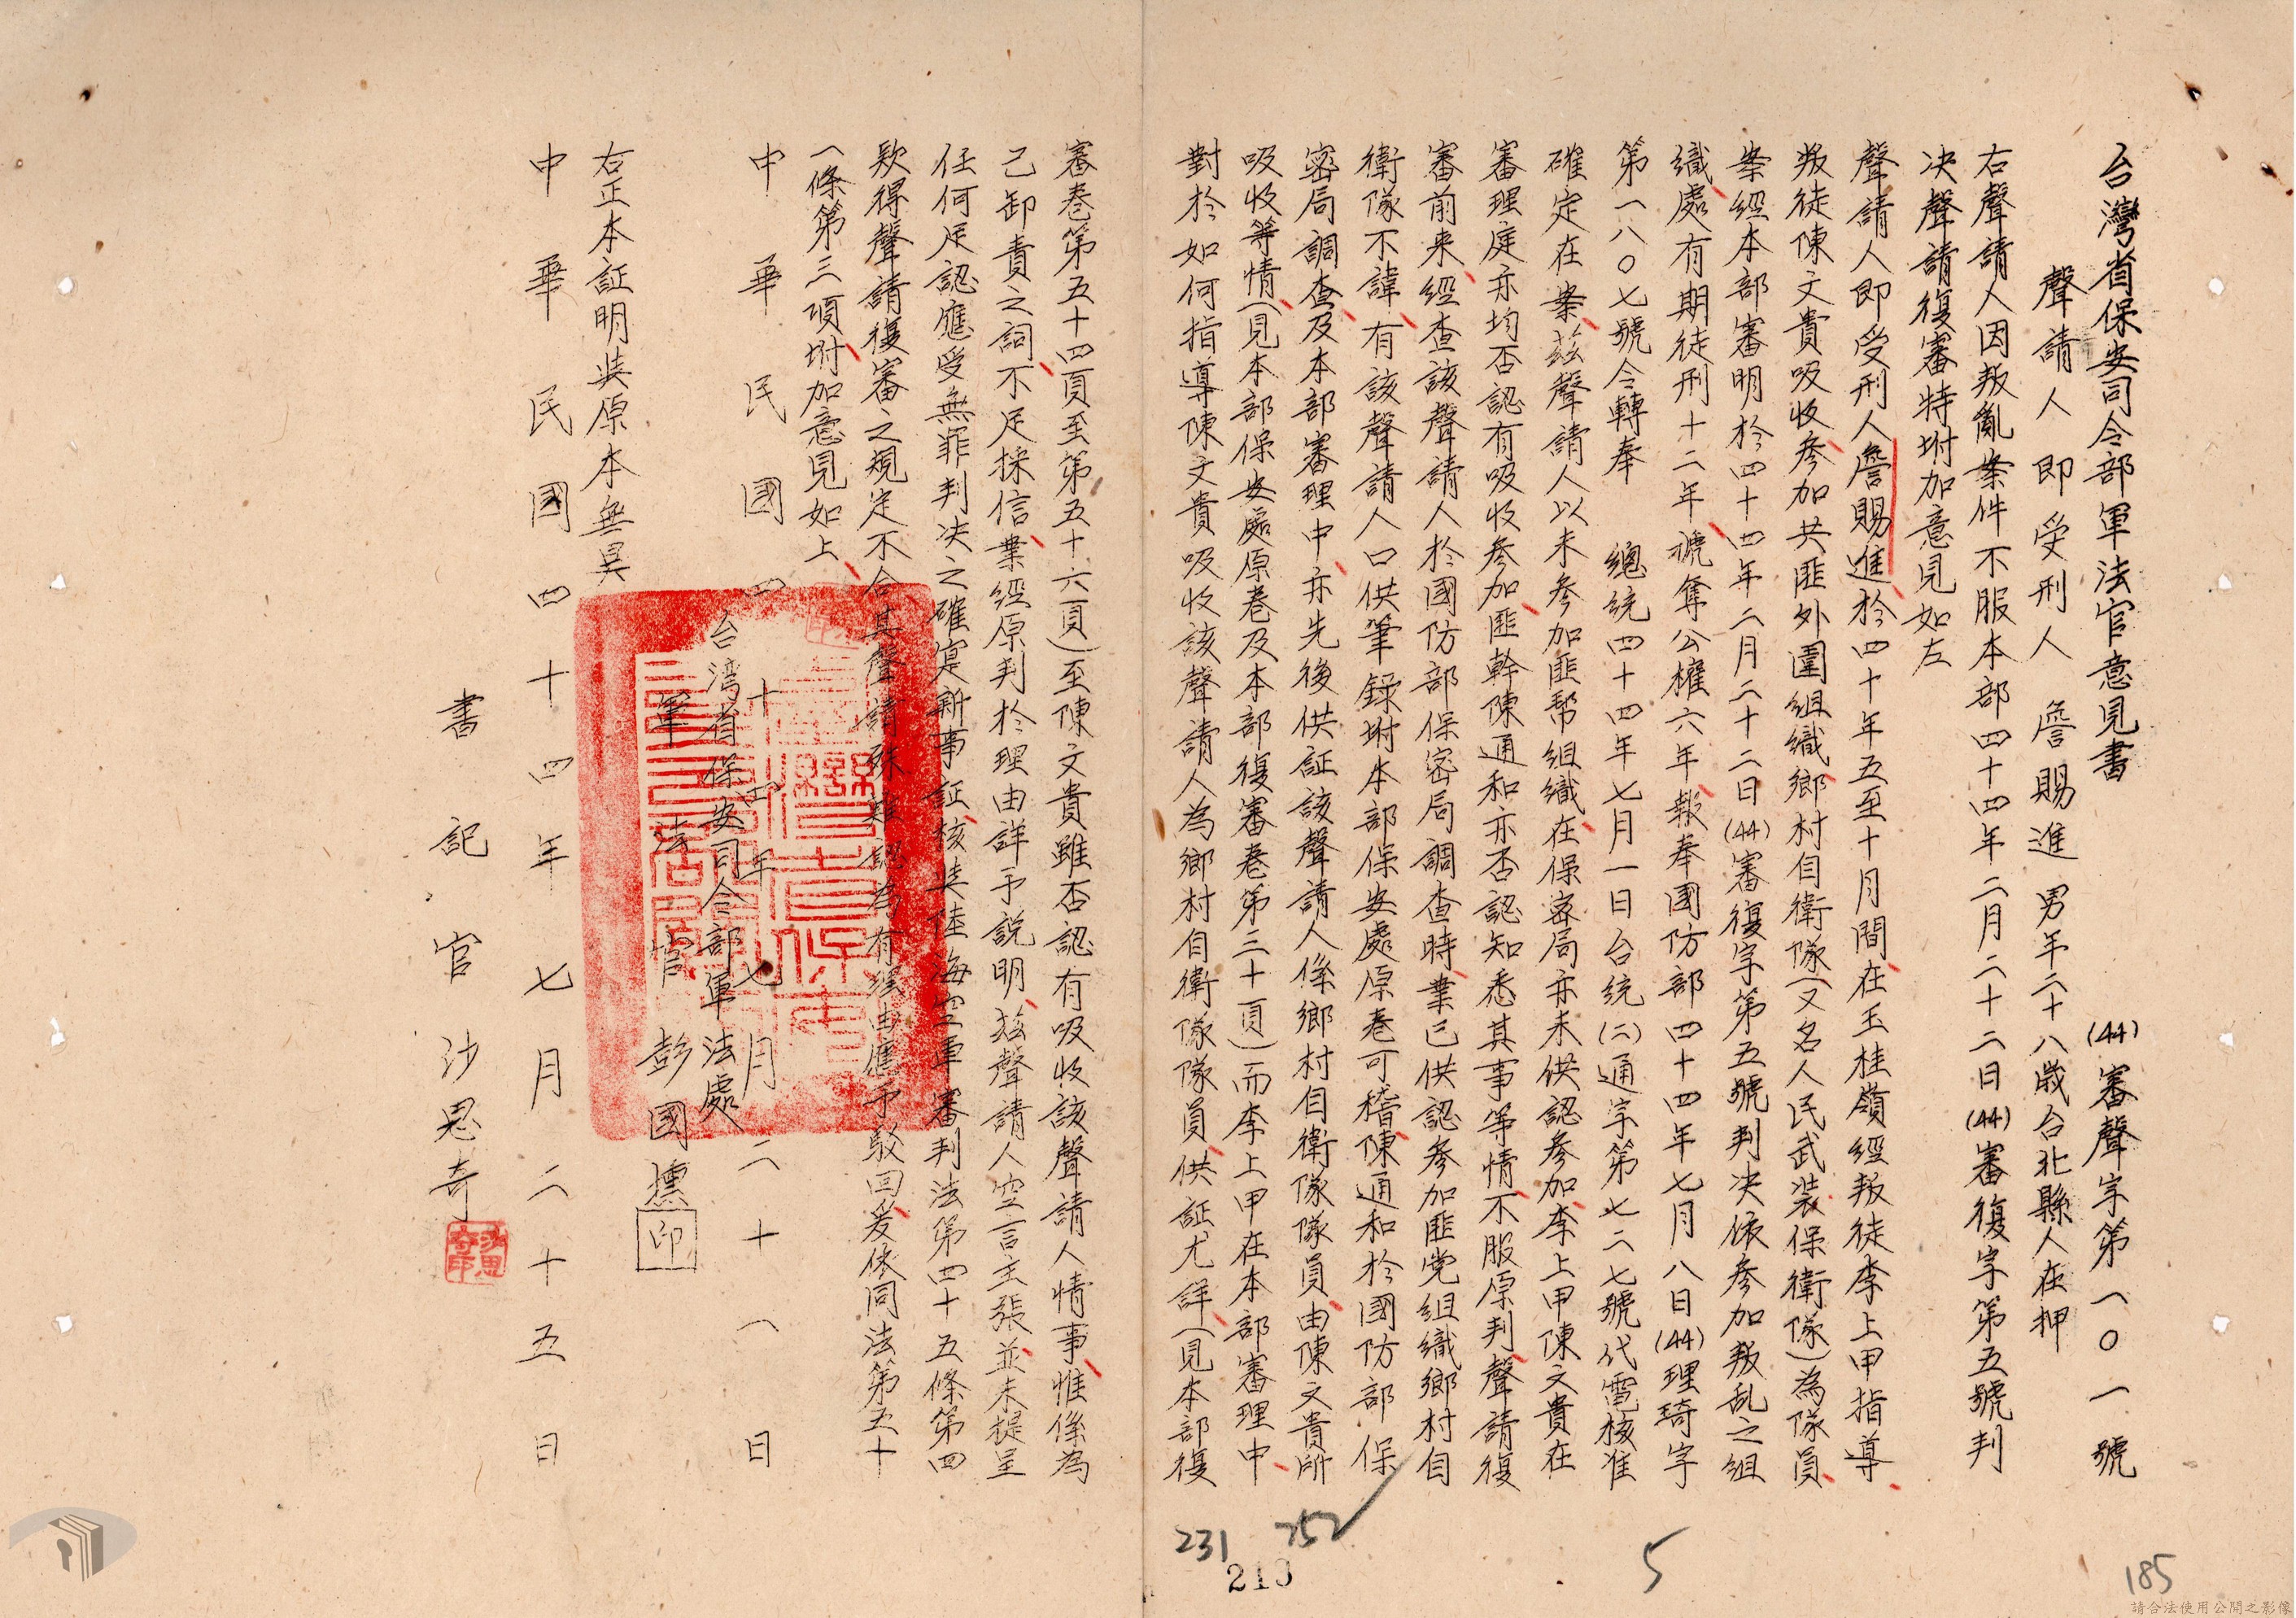 台灣省保安司令部軍法官意見書
(44)審聲字第一〇一號
聲請人即受刑人 詹賜進 男年二十八歲台北縣人在押
右聲請人因叛亂案件不服本部四十四年二月二十二日(44)審復字第五號判
決聲請復審特坿加意見如左
聲請人即受刑人詹賜進於四十年五至十月間在玉桂嶺經叛徒李上甲指導
叛徒陳文貴吸收參加共匪外圍組織鄉村自衛隊(又名人民武裝保衛隊)為隊員
案經本部審明於四十四年二月二十二日(44)審復字第五號判決依參加叛乱之組
織處有期徒刑十二年褫奪公權六年報奉國防部四十四年七月八日(44)理琦字
第一八〇七號令轉奉 總統四十四年七月一日台統(二)通字第七二七號代電核准
確定在案茲聲請人以未參加匪帮組織在保密局亦未供認參加李上甲陳文貴在
審理庭亦均否認有吸收參加匪幹陳通和亦否認知悉其事等情不服原判聲請復
審前来經查該聲請人於國防部保密局調查時業已供認參加匪党組織鄉村自
衛隊不諱有該聲請人口供筆錄坿本部保安處原卷可稽陳通和於國防部保
密局調查及本部審理中亦先後供証該聲請人係鄉村自衛隊隊員由陳文貴所
吸收等情(見本部保安處原卷及本部復審卷第三十頁)而李上甲在本部審理中
對於如何指導陳文貴吸收該聲請人為鄉村自衛隊隊員供証尤詳(見本部復
審卷第五十四頁至第五十六頁)至陳文貴雖否認有吸收該聲請人情事惟係為
己卸責之詞不足採信業經原判於理由詳予説明茲聲請人空言主張並未提呈
任何足認應受無罪判決之確實新事証核与陸海空軍審判法第四十五條第四
款得聲請復審之規定不合其聲請殊難認為有經由應予駁回爰依同法第五十
一條第三項坿加意見如上
中華民國四十四年七月二十一日
台湾省保安司令部軍法處
軍法官彭國壎 印
右正本証明与原本無異
中華民國四十四年七月二十五日
書記官沙思奇
沙思奇印
231
213
752
5
185
請合法使用公開之影像